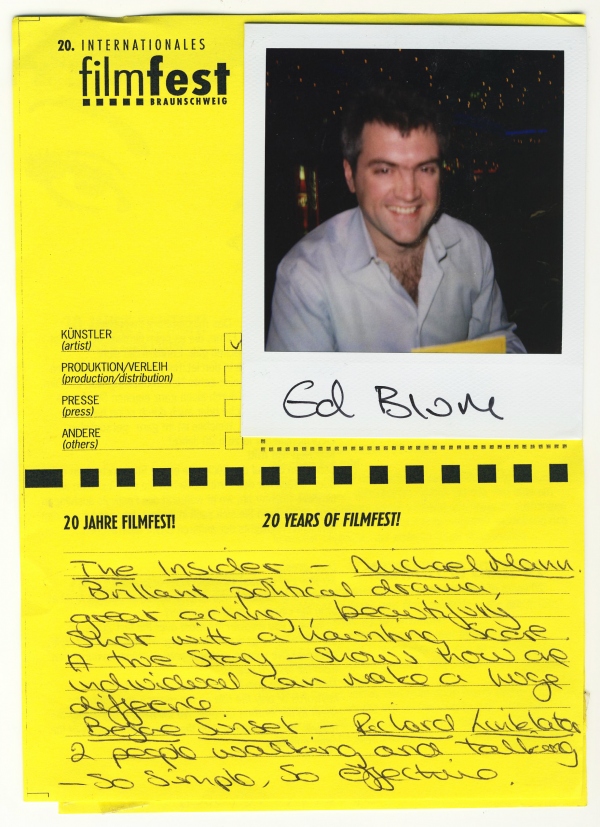 20. INTERNATIONALES
filmfest
BRAUNSCHWEIG
KÜNSTLER
(artist)
PRODUKTION/VERLEIH
(production/distribution)
PRESSE
(press)
ANDERE
(others)
Ed Blum
20 JAHRE FILMFEST!
20 YEARS OF FILMFEST!
The Insider – Michael Mann.
Brillant political drama,
great acting, beautifully
shot with a haunting score.
A true story – shows how one
individual can make a huge
difference
Before Sunset – Richard Linklater
2 people walking and talking
– so simple, so effective.